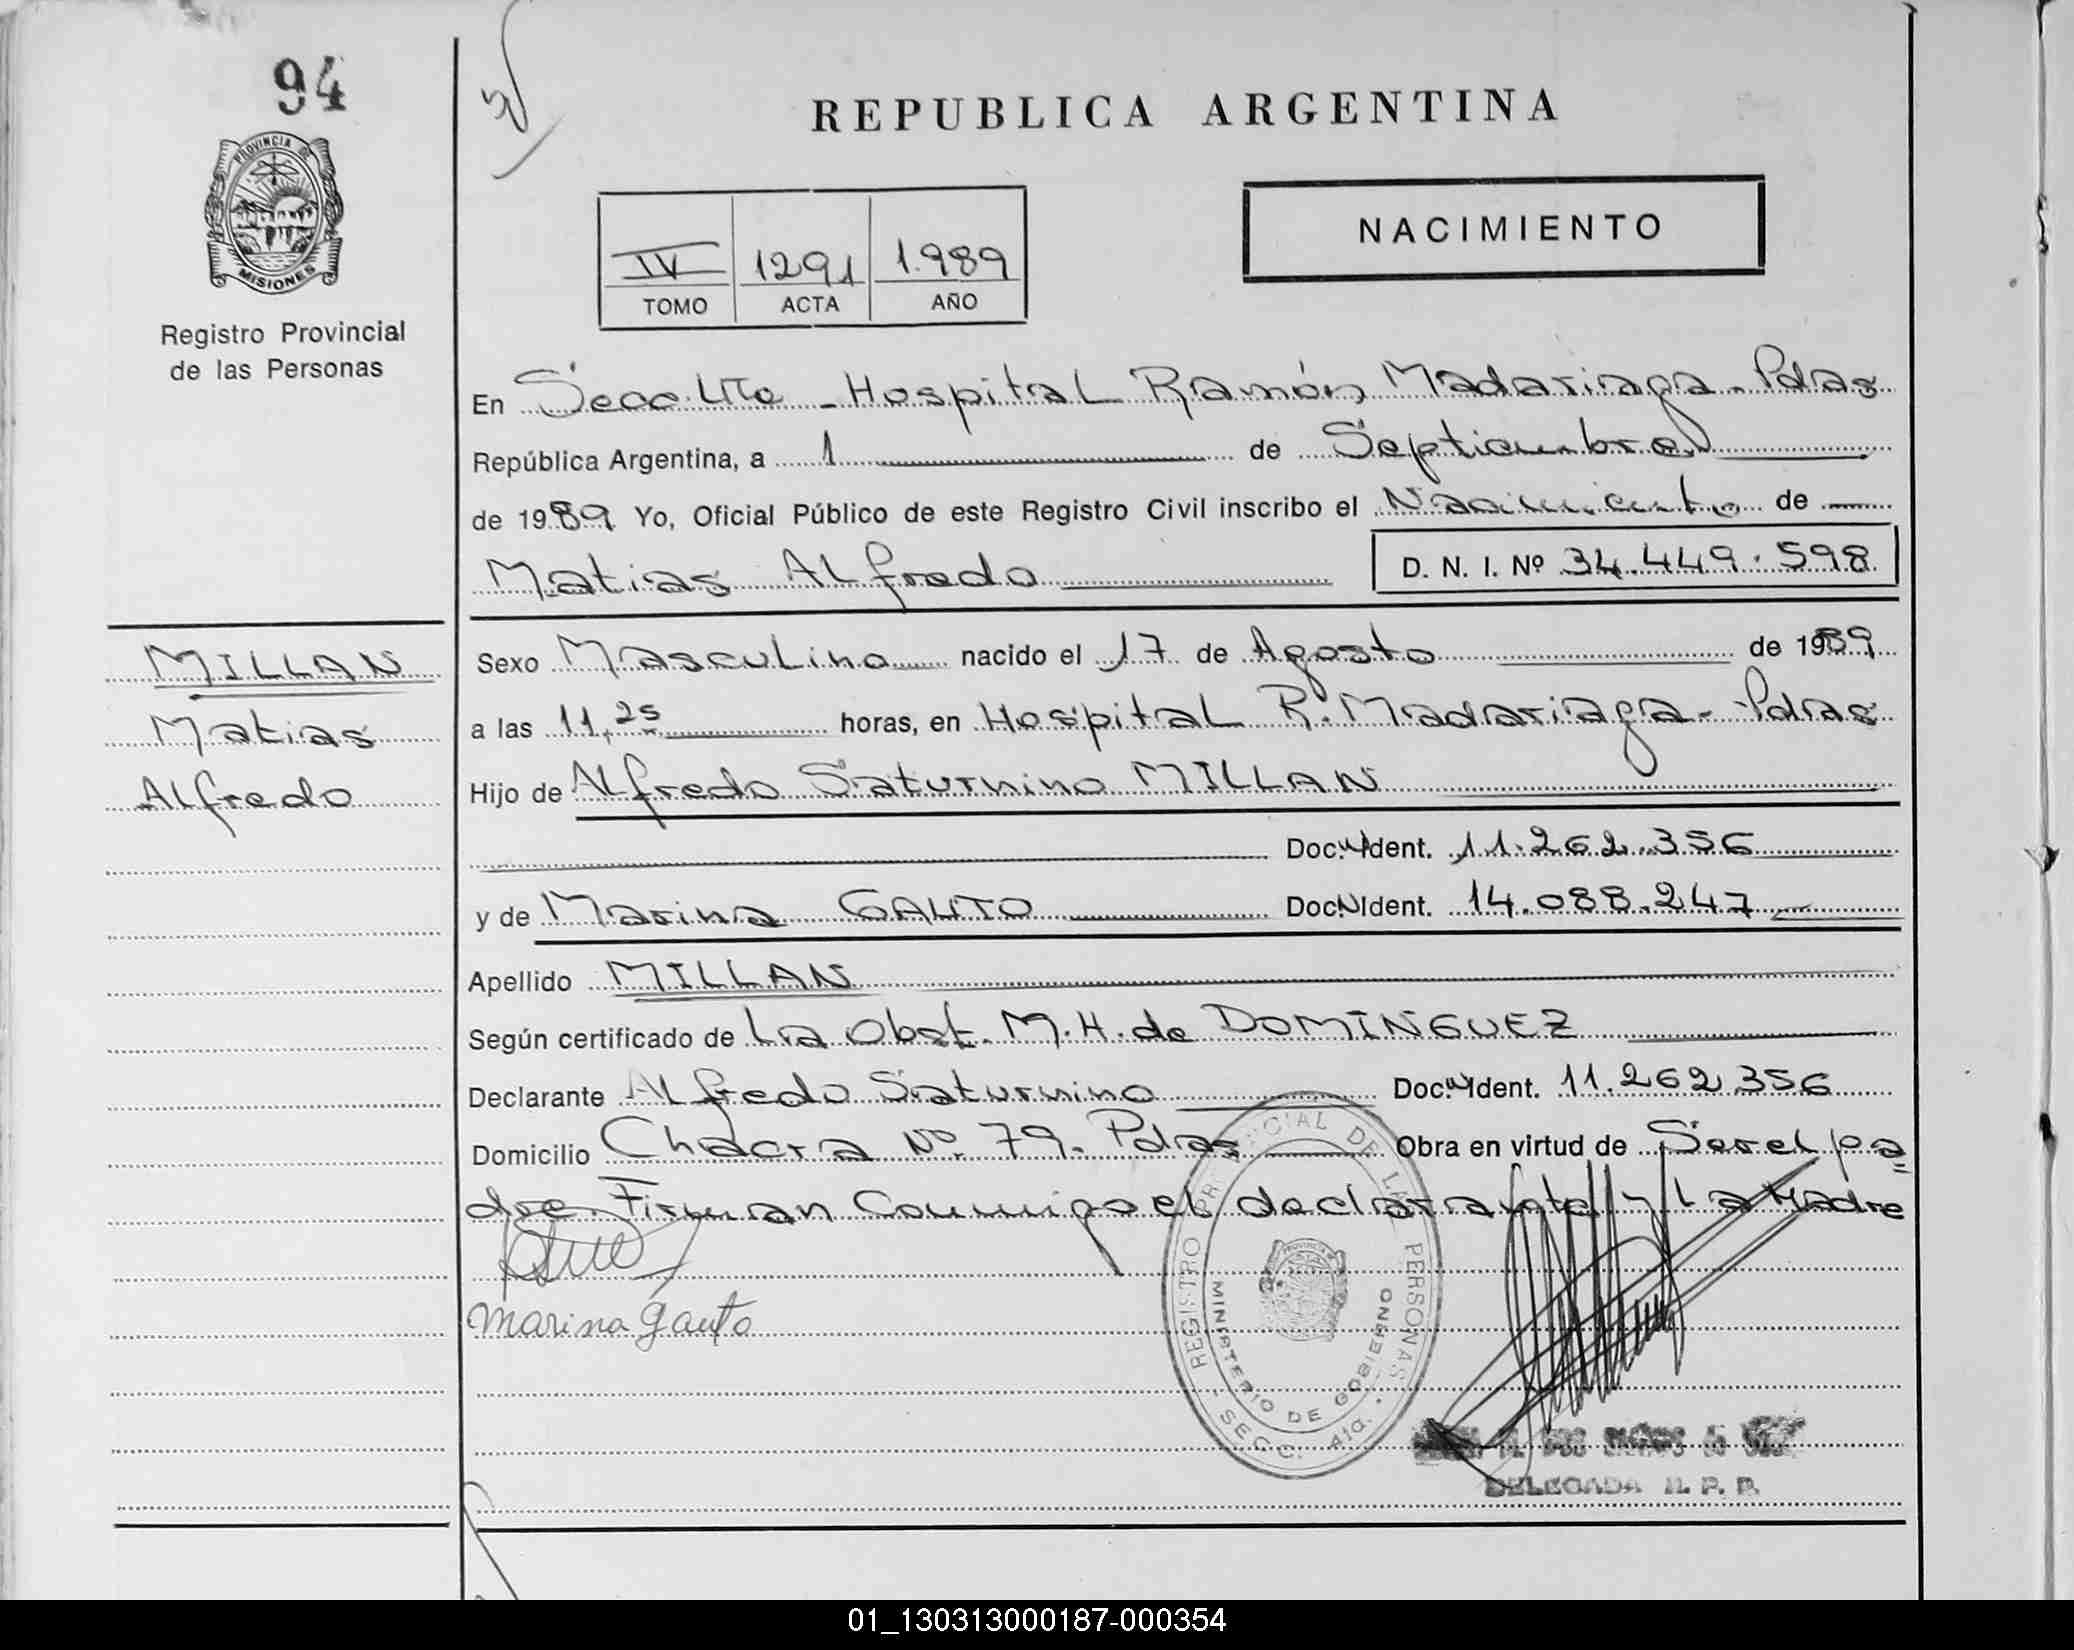 94
PROVINCIA DE
MISIONES
Registro Provincial
de las Personas
REPUBLICA ARGENTINA
NACIMIENTO
IV 1291 1.989
TOMO ACTA AÑO
En Secc. 4ta - Hospital Ramón Madariaga - Pdas
República Argentina, a 1 de Septiembre
de 1989 Yo, Oficial Público de este Registro Civil inscribo el Nacimiento de
Matias Alfredo D. N. I. Nº 34.449.598
MILLAN
Matias
Alfredo
Sexo Masculino nacido el 17 de Agosto de 1989
a las 11,25 horas, en Hospital R. Madariaga - Pdas
Hijo de Alfredo Saturnino MILLAN
Doc. Ident. 11.262.356
y de Marina GAUTO Doc. Ident. 14.088.247
Apellido MILLAN
Según certificado de La Obst. M. H. de DOMINGUEZ
Declarante Alfredo Saturnino Doc. Ident. 11.262.356
Domicilio Chacra Nº 79. Pdas Obra en virtud de Ser el pa=
dre. Firman Conmigo el declarante y La Madre
Marina Gauto
REGISTRO PROVINCIAL DE LAS PERSONAS
MINISTERIO DE GOBIERNO
SECC. 4ta.
DELEGADA R. P. P.
01_130313000187-000354